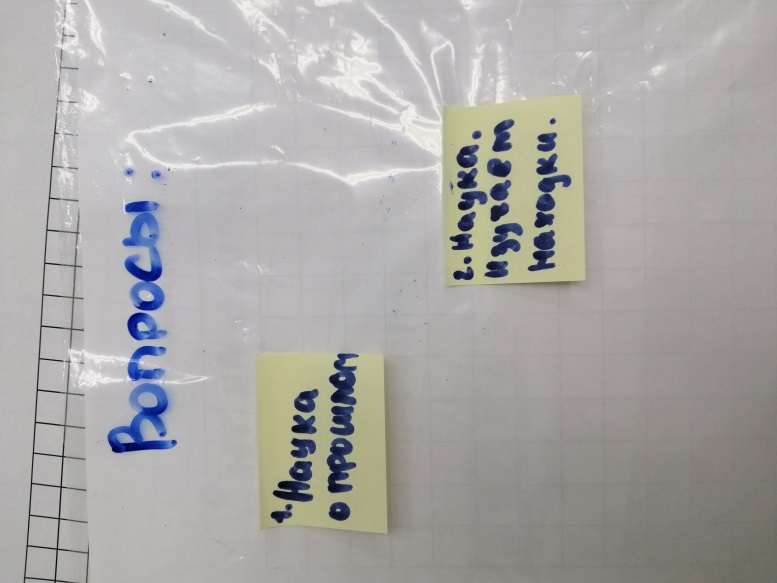 Вопросы:
1. Наука
о прошлом
2. Наука.
изучает
находки.